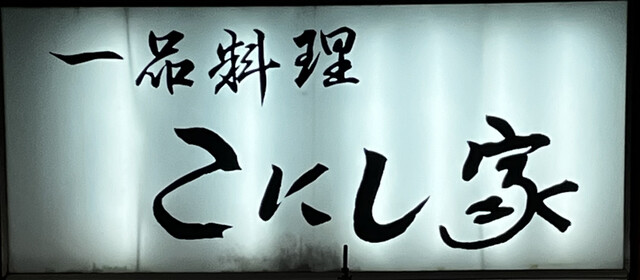 一品料理
こにし家